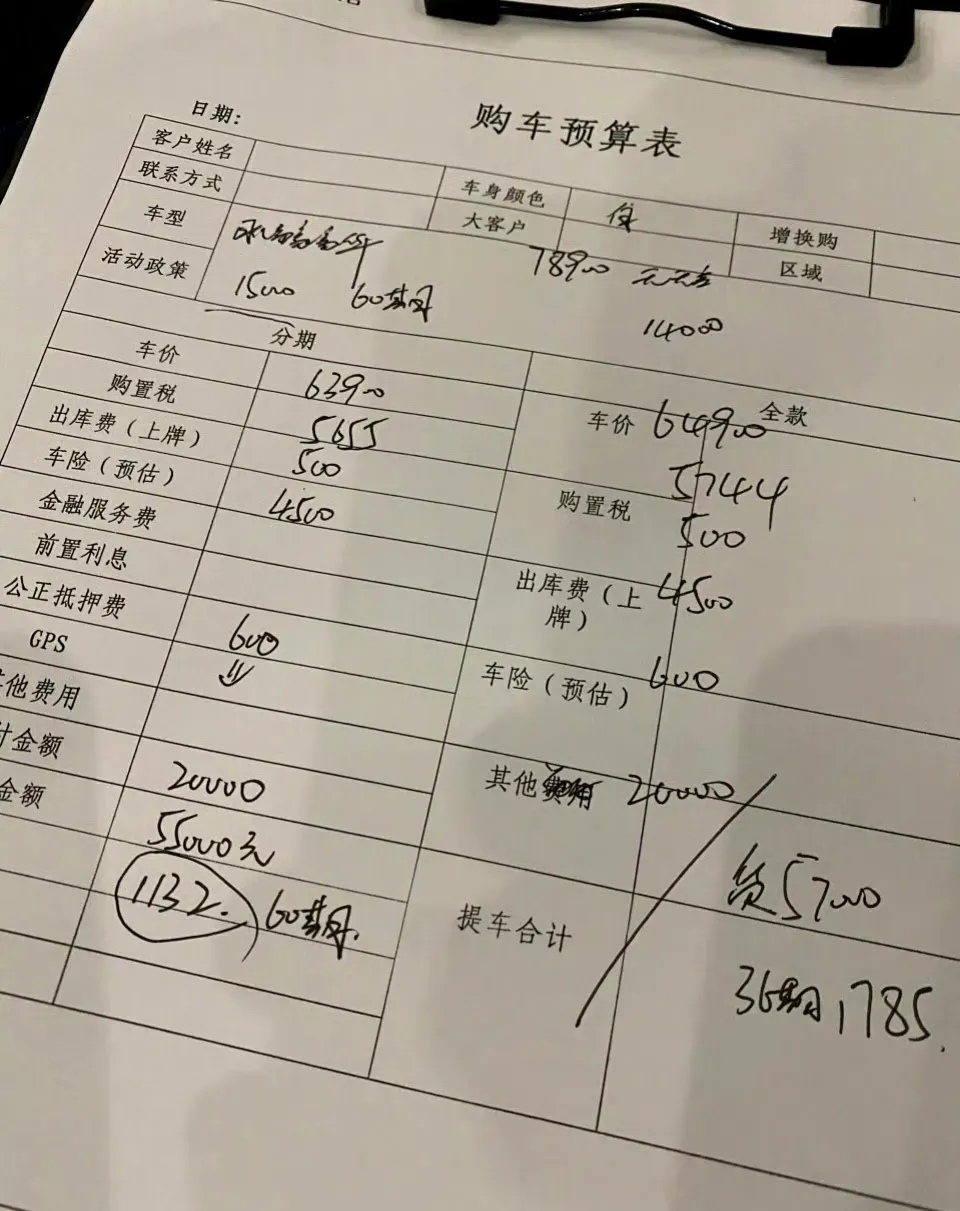 购车预算表
日期:
客户姓名 车身颜色 增换购
联系方式 大客户 区域
车型 78900
活动政策 1500 60期 14000
分期 全款
车价 63900 车价 64900
购置税 5655 购置税 5744
出库费（上牌） 500 500
车险（预估） 4500 出库费（上牌） 4500
金融服务费
前置利息 车险（预估） 600
公正抵押费 600
GPS
其他费用 其他费用 20000
计金额 20000
金额 55000元 贷 5700
1132. 60期. 提车合计
36期 1785.